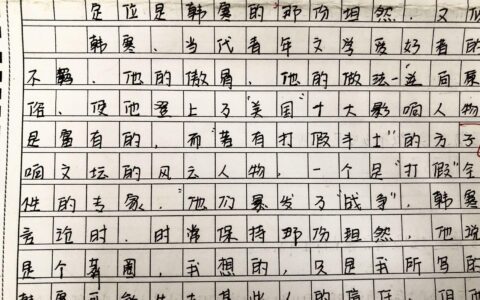 定位是韩寒的那份坦然.又似
韩寒.当代青年文学爱好者的
不羁.他的傲骨.他的做法一逆向原
俗.使他登上了"美国"十大影响人物
是富有的.而"著有打假斗士"的方子
响文坛的风云人物.一个是"打假"全
性的专家."他们暴发了"战争".韩寒
言论时.时常保持那份坦然.他说
是个著圈.我想的.只是我所写的
韩寒可能失去某些人的信任.但